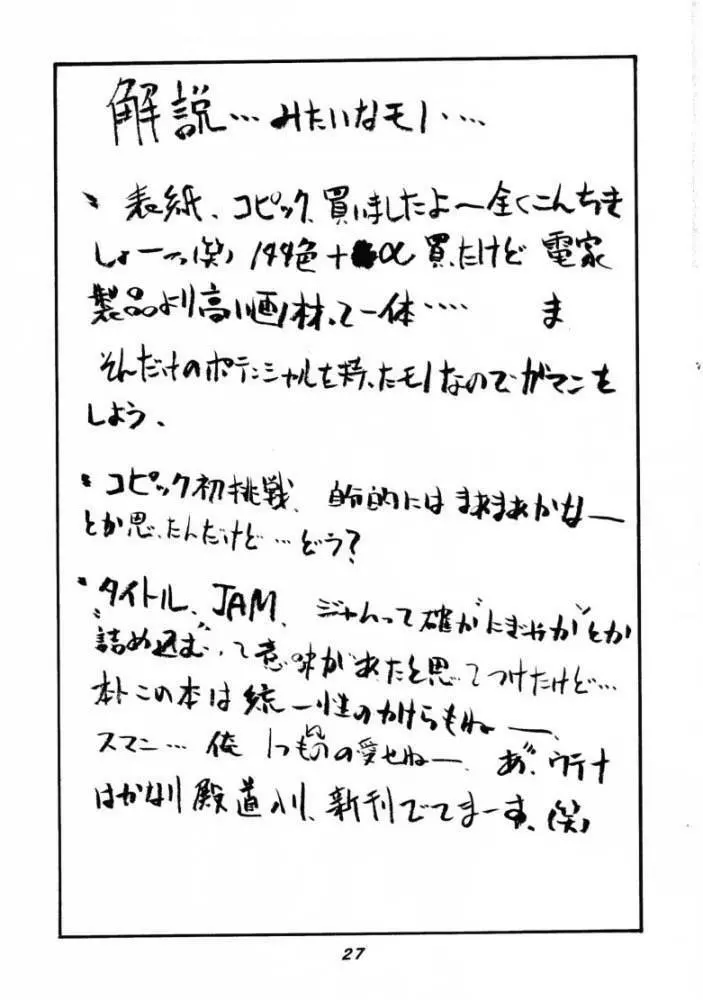 解説…みたいなモノ‥‥
・表紙、コピック、買いましたよ〜全くこんちき
しょーっ(笑) 144色+α買ったけど 電家
製品より高い画材って一体‥‥ ま
そんだけのポテンシャルを持ったモノなのでガマンを
しよう、
・コピック初挑戦、自分的にはまあまあかなー
とか思ったんだけど…どう?
・タイトル、JAM、ジャムって確か"にぎやか"とか
"詰め込む"って意味があったと思ってつけたけど…
本トこの本は統一性のかけらもねー、
スマン…俺 いつもの愛せねー、あ"、ウテナ
はかなり殿道入り、新刊でてまーす、(笑)
27